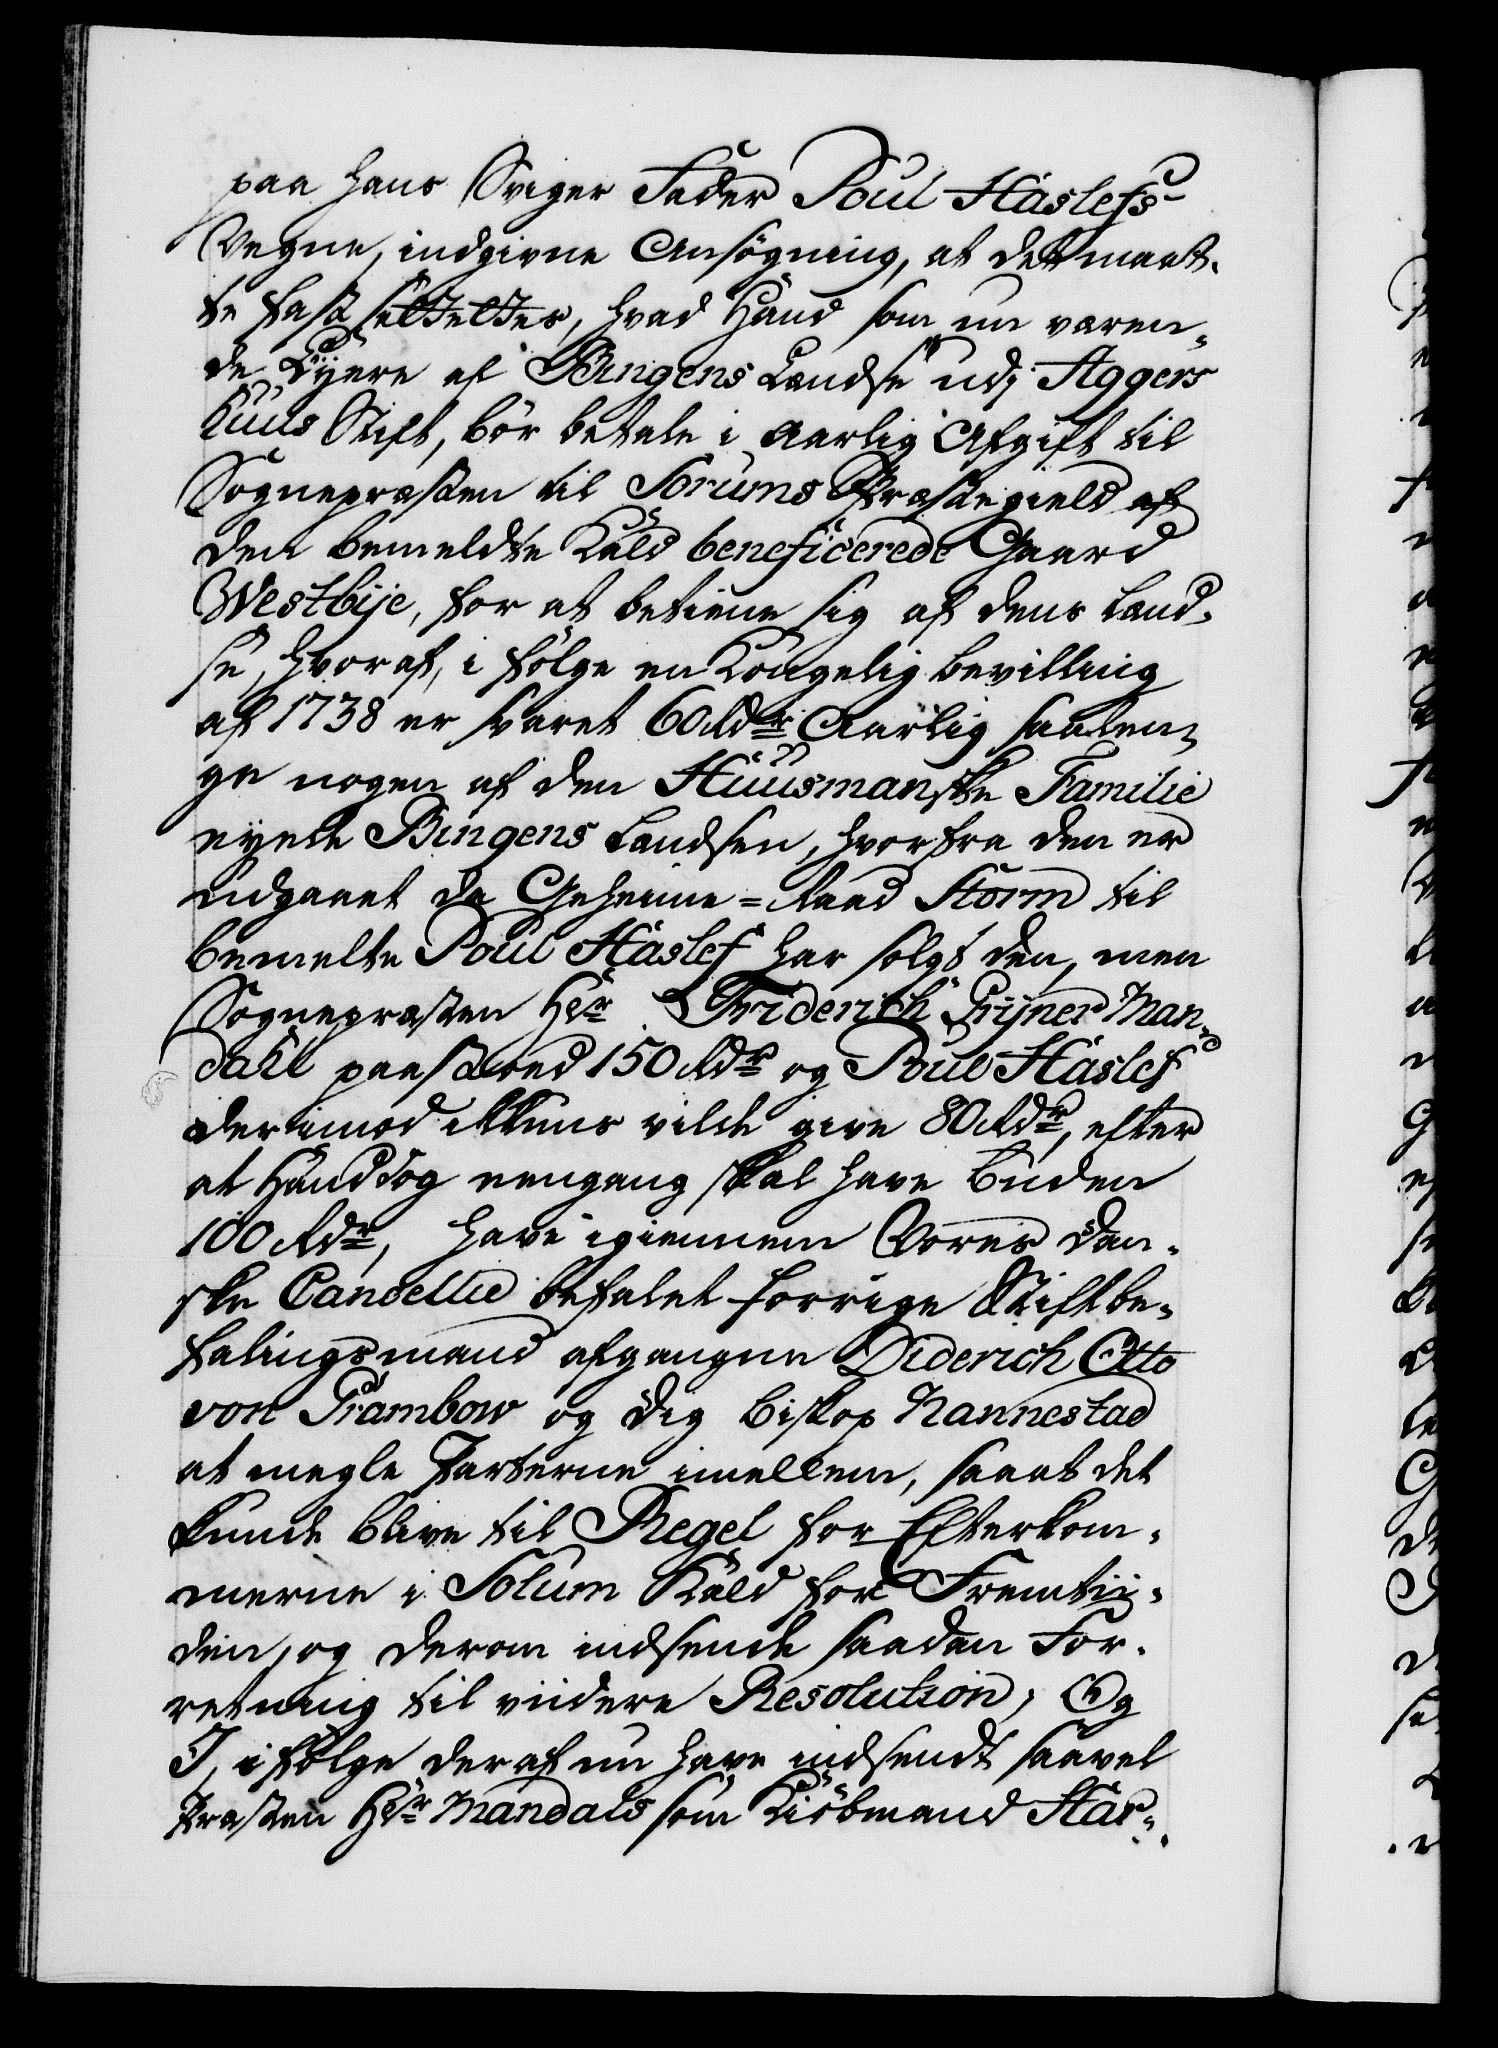 paa hans Sviger Fader Poul Häslefs
Vegne, indgivne Ansögning, at det maat-
te fast settettes, hvad Hand som nu væren-
de Eyere af Bingens Landse udj Aggers
huus Stift, bör betale i aarlig Afgift til
Sognepræsten til Sörums Præstegield af
den bemeldte Kald beneficerede Gaard
Westbije, for at betiene sig af dens Land-
se, hvoraf, i fölge en Kongelig bevilling
af 1738 er svaret 60 Rdr Aarlig saalen-
ge nogen af den Huusmanske Familie
eyede Bingens Landsen, hvorfra den er
udgaaet da Geheime-Raad Storm til
bemelte Poul Häslef har solgt den, men
Sognepræsten Hr Friderich Grÿner Man-
dahl paastoed 150 Rdr og Poul Häslef
derimod ikkuns vilde give 80 Rdr, efter
at Hand dog eengang skal have buden
100 Rdr, have igiennem Vores Dan-
ske Cancellie befalet forrige Stiftbe-
falingsmand afgangne Diderich Otto
von Grambow og dig Biskop Nannestad
at megle Parterne imellem, saa at det
kunde blive til Regel for Efterkom-
merne i Solum Kald for Fremtii-
den, og derom indsende saadan For-
retning til viidere Resolution; Og
I, i fölge deraf nu have indsendt saavel
Præsten Hr Mandals som Kiöbmand Här-